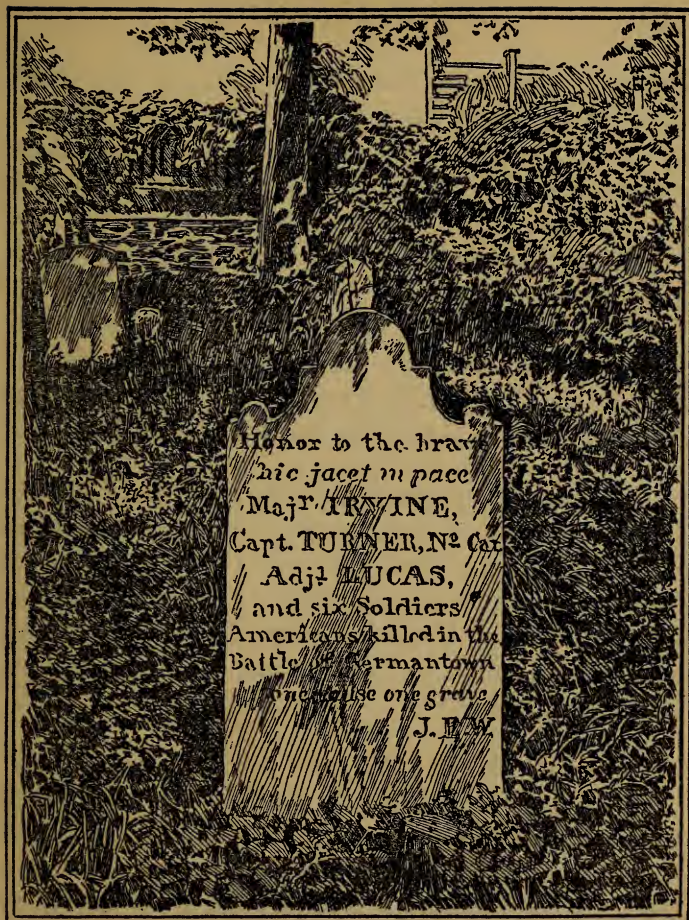 Honor to the brave
hic jacet in pace
Majr. IRVINE,
Capt. TURNER, No. Car
Adjt. LUCAS,
and six Soldiers
Americans killed in the
Battle of Germantown
one cause one grave
J. F. W.